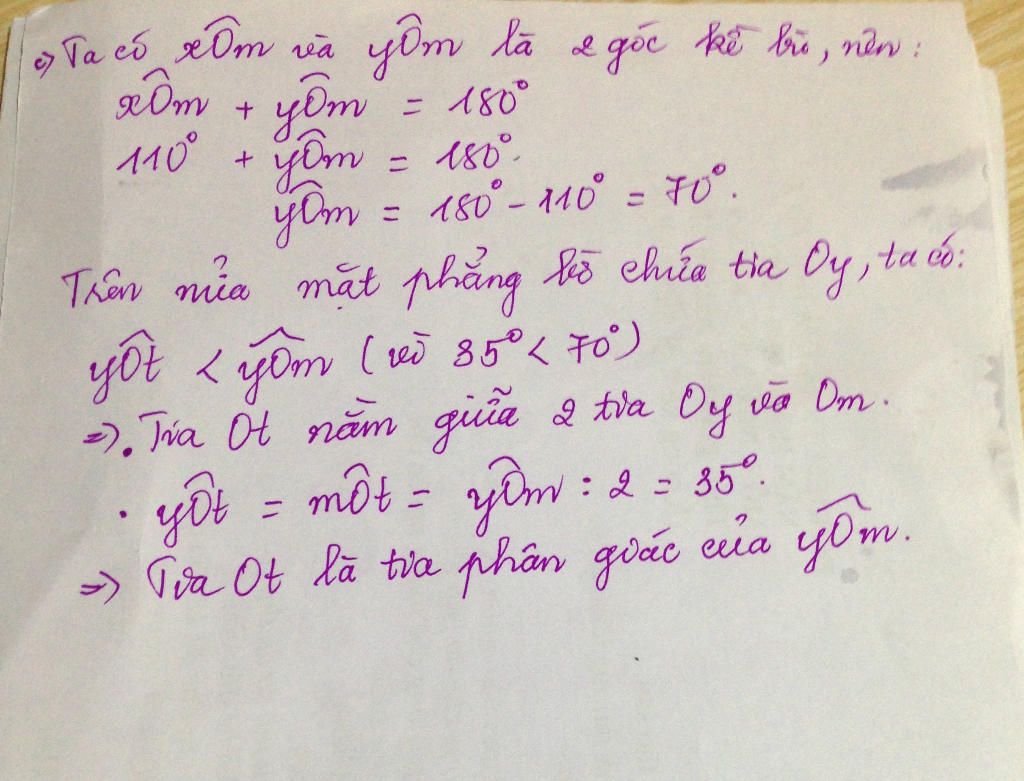 c) Ta có xÔm và yÔm là 2 góc kề bù, nên:
xÔm + yÔm = 180°
110° + yÔm = 180°.
yÔm = 180° - 110° = 70°.
Trên nửa mặt phẳng bờ chứa tia Oy, ta có:
yÔt < yÔm (vì 35° < 70°)
=>. Tia Ot nằm giữa 2 tia Oy và Om.
. yÔt = mÔt = yÔm : 2 = 35°.
=> Tia Ot là tia phân giác của yÔm.